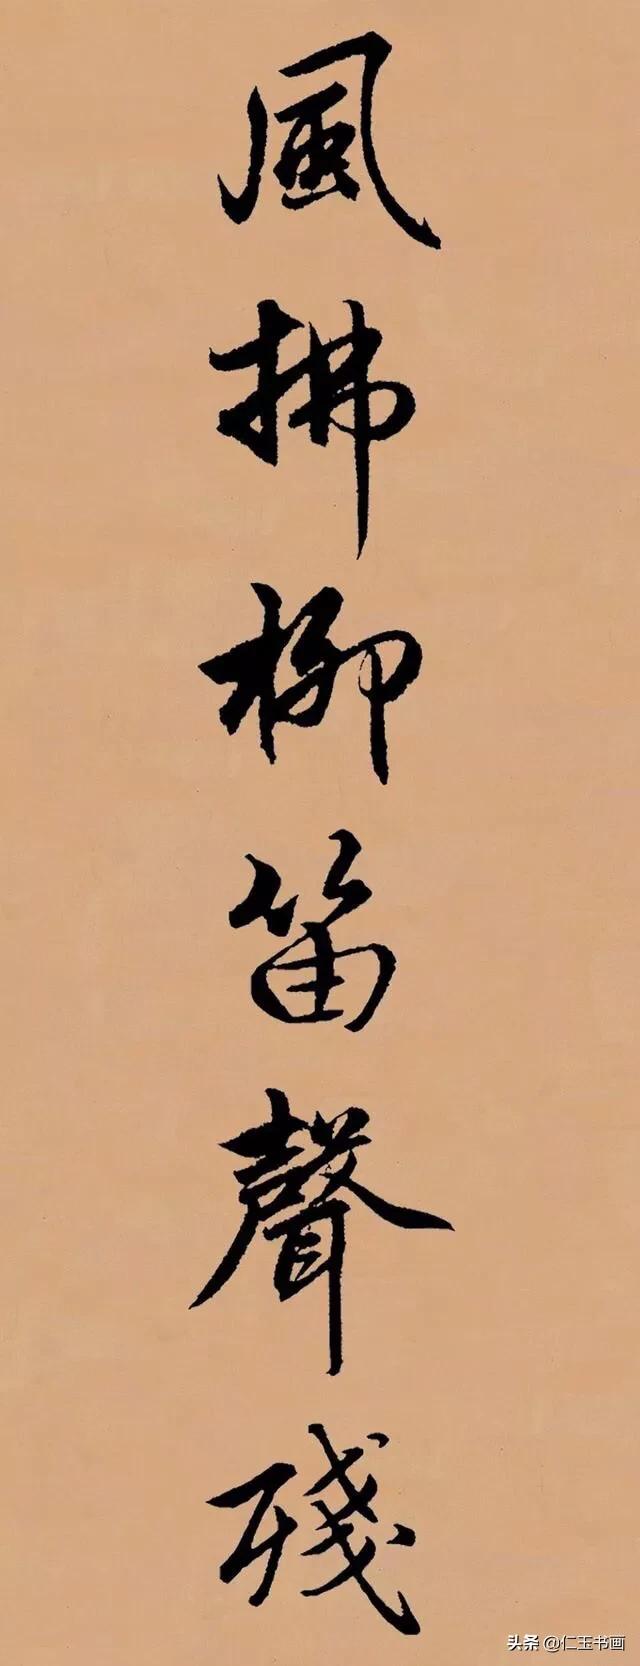 風拂柳笛聲殘
头条 @仁玉书画